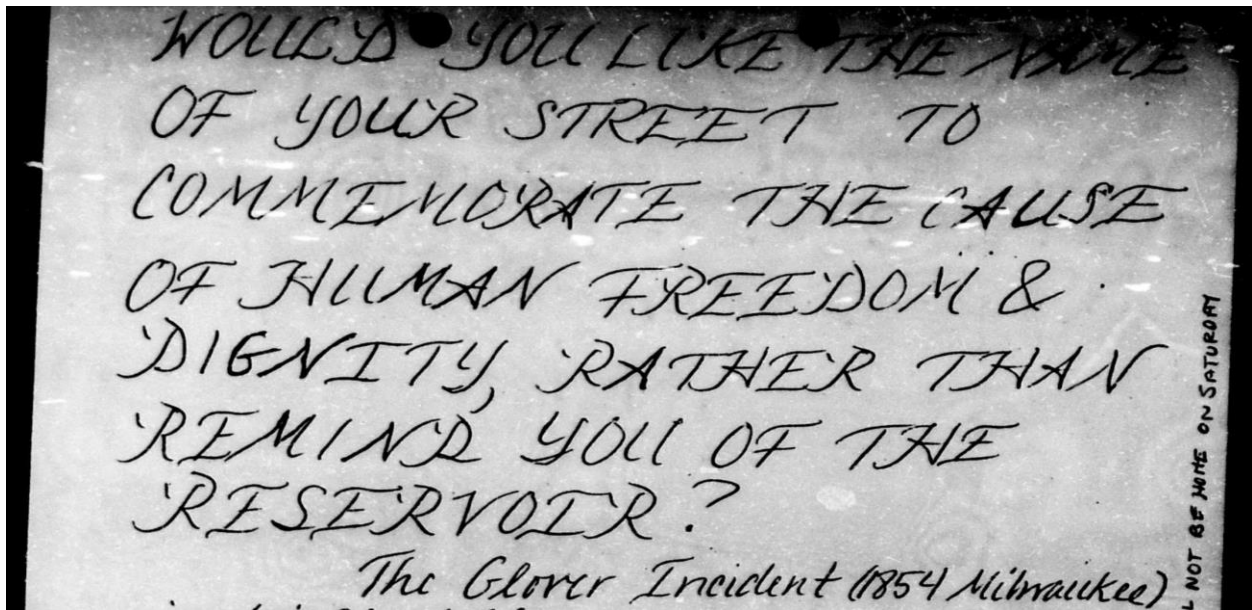 WOULD YOU LIKE THE NAME
OF YOUR STREET TO
COMMEMORATE THE CAUSE
OF HUMAN FREEDOM &
DIGNITY, RATHER THAN
REMIND YOU OF THE
RESERVOIR?
The Glover Incident (1854 Milwaukee)
NOT BE HOME ON SATURDAY